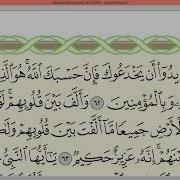 يدُوٓا۟ أَن يَخْدَعُوكَ فَإِنَّ حَسْبَكَ ٱللَّهُ ۚ هُوَ ٱلَّذِ
وَبِٱلْمُؤْمِنِينَ ٦٢ وَأَلَّفَ بَيْنَ قُلُوبِهِمْ ۚ لَوْ
ٱلْأَرْضِ جَمِيعًا مَّآ أَلَّفْتَ بَيْنَ قُلُوبِهِمْ وَلَٰكِ
نَهُمْ ۚ إِنَّهُۥ عَزِيزٌ حَكِيمٌ ٦٣ يَٰٓأَيُّهَا ٱلنَّبِىُّ